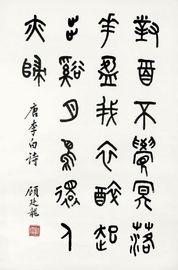 對酉不覺冥落
華盈我衣醉起
步谿月鳥還人
亦
唐李白詩
顧廷龍